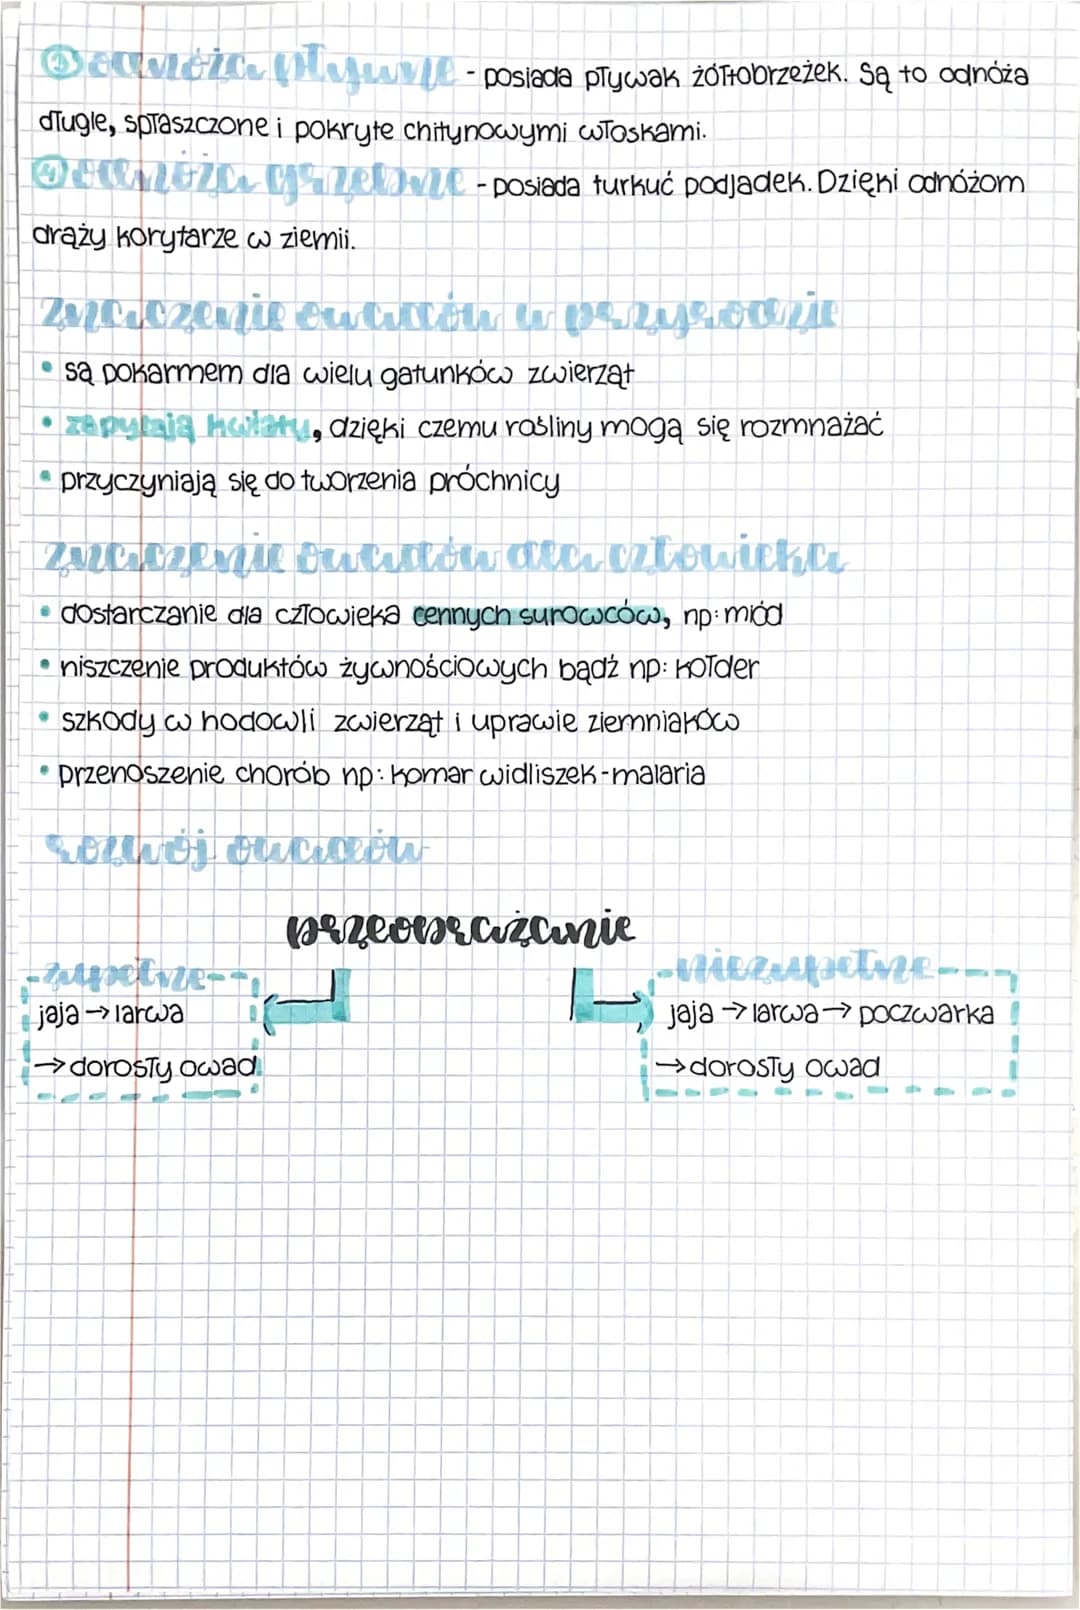 ③ odnóża pływne - posiada pływak żółtobrzeżek. Są to odnóża
długie, spłaszczone i pokryte chitynowymi włoskami.
④ odnóża grzebne - posiada turkuć podjadek. Dzięki odnóżom
drąży korytarze w ziemii.
Znaczenie owadów w przyrodzie
• są pokarmem dla wielu gatunków zwierząt
• zapylają kwiaty, dzięki czemu rośliny mogą się rozmnażać
• przyczyniają się do tworzenia próchnicy
znaczenie owadów dla człowieka
• dostarczanie dla człowieka cennych surowców, np: miód
• niszczenie produktów żywnościowych bądź np: kołder
• szkody w hodowli zwierząt i uprawie ziemniaków
• przenoszenie chorób np: komar widliszek - malaria
rozwój owadów
przeobrażanie
zupełne
jaja → larwa
→ dorosły owad
niezupełne
jaja → larwa → poczwarka
→ dorosły owad